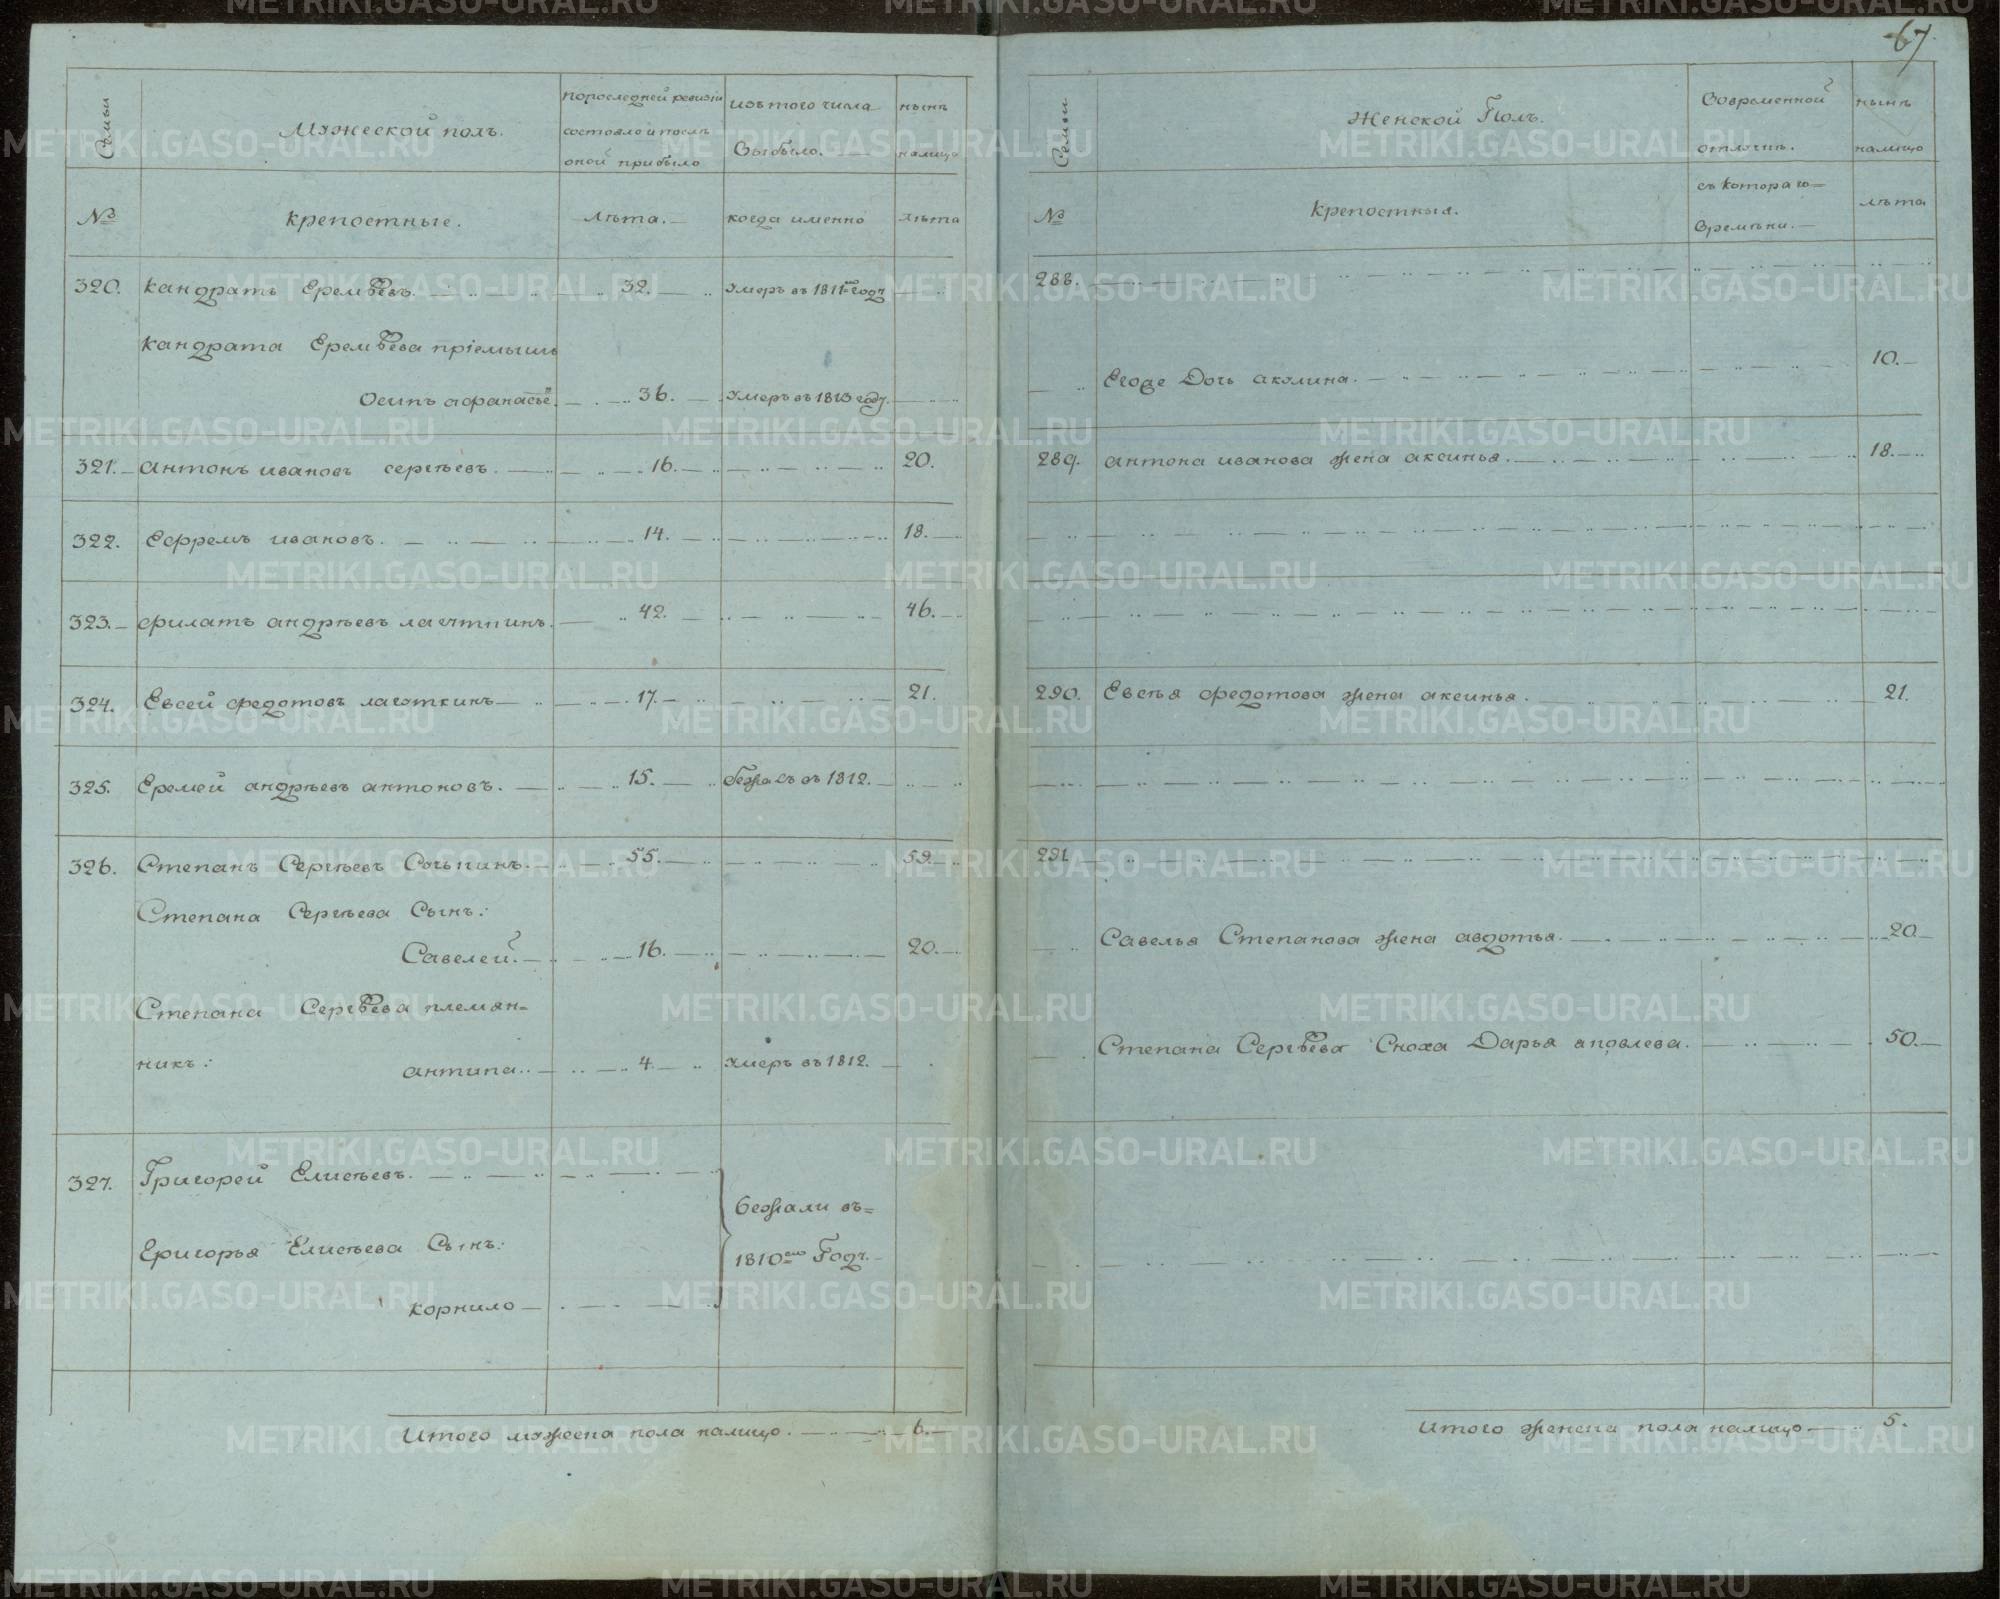 67.
Семьи
Мужеской полъ.
попоследней ревизіи
состояло и послъ
оной прибыло
изъ того числа
выбыло.
нынъ
налицо
№
крепостные.
лъта.
когда именно
лъта
320. кандратъ Еремѣевъ. 32. умеръ въ 1811мъ году
кандрата Еремѣева пріемышъ
Осипъ афанасье. 36. умеръ въ 1813 году.
321. антонъ ивановъ сергѣевъ. 16. 20.
322. Ефремъ ивановъ. 14. 18.
323. филатъ андрѣевъ 42. 46.
324. Евсей федотовъ лагуткинъ 17. 21.
325. Еремей андрѣевъ антоновъ. 15. бежалъ въ 1812.
326. Степанъ Сергѣевъ 55. 59.
Степана Сергѣева Сынъ:
Савелей. 16. 20.
Степана Сергѣева племян=
никъ: антипа. 4. умеръ въ 1812.
327. Григорей Елисѣевъ.
Григорья Елисѣева Сынъ:
корнило
бежали въ=
1810мъ Году.
Итого мужеска пола налицо. 6.
Семьи
Женской Полъ.
Вовременной
отлучкъ.
нынъ
налицо
№
крепостныя.
съ котораго=
времѣни.
лъта
288.
Егоже Дочь акулина. 10.
289. антона иванова жена аксинья. 18.
290. Евсѣя федотова жена аксинья. 21.
291.
Савелья Степанова жена авдотья. 20.
Степана Сергѣева Сноха Дарья 50.
Итого женска пола налицо 5.
METRIKI.GASO-URAL.RU